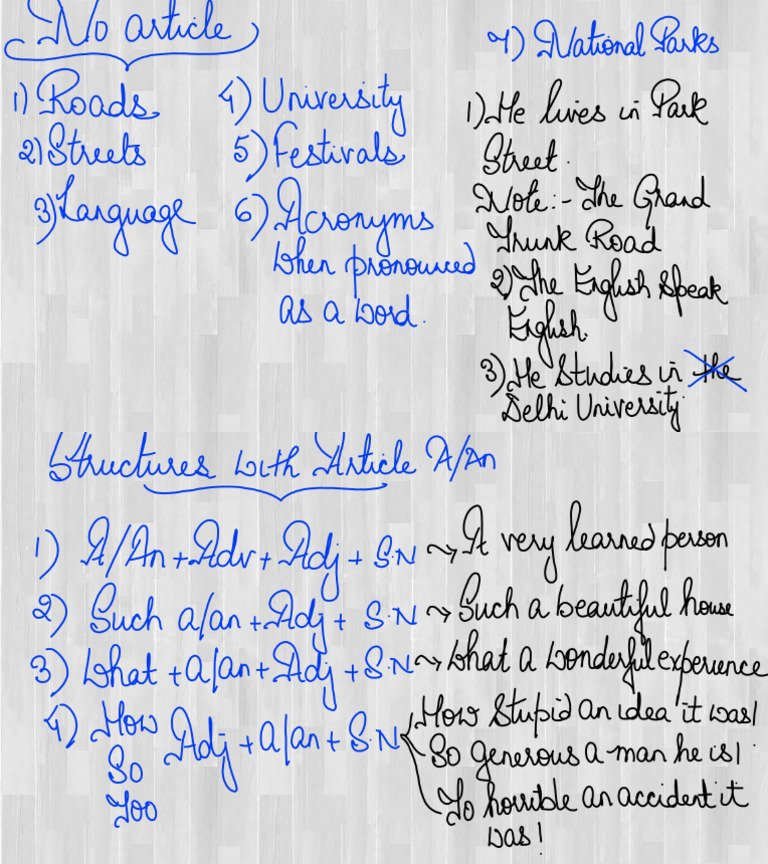 No article
1) Roads
2) Streets
3) Language
4) University
5) Festivals
6) Acronyms
when pronounced
as a word.
7) National Parks
1) He lives in Park
Street.
Note:- The Grand
Trunk Road
2) The English speak
English.
3) He Studies in the
Delhi University
Structures with Article A/An
1) A/An + Adv + Adj + S.N → A very learned person
2) Such a/an + Adj + S.N → Such a beautiful house
3) What + a/an + Adj + S.N → What a wonderful experience
4) How
So
Too
Adj + a/an + S.N
How Stupid an idea it was!
So generous a man he is!
To horrible an accident it
was!